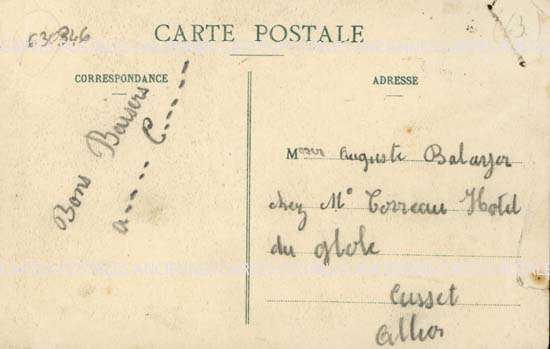 630346
CARTE POSTALE
CORRESPONDANCE
Bons Baisers
a..... C.....
ADRESSE
Auguste
chez Mr Correau Hotel
du globe
Cusset
Allier